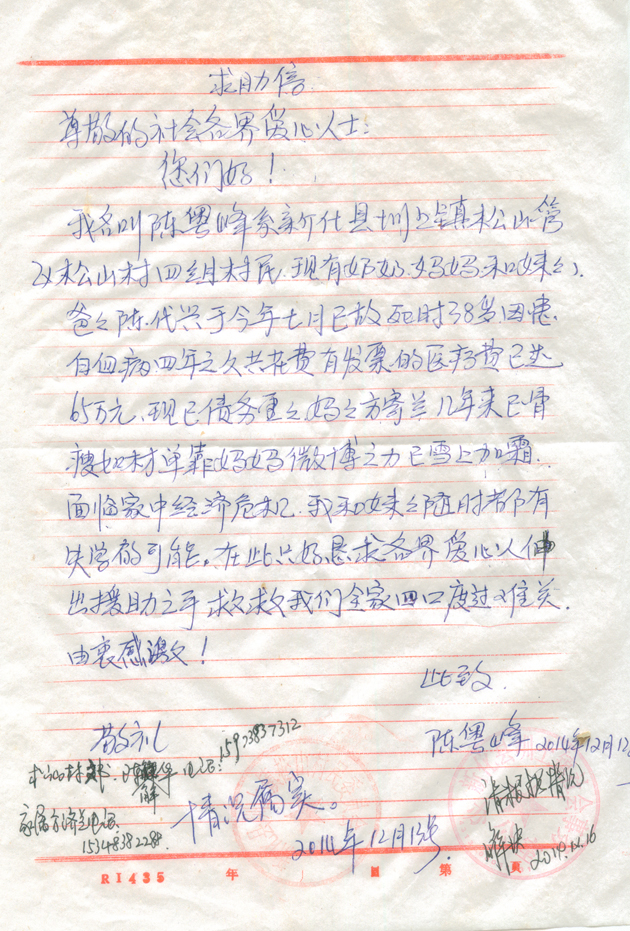 求助信
尊敬的社会各界爱心人士：
您们好！
我名叫陈粤峰系新化县圳上镇松山管
区松山村四组村民.现有奶奶.妈妈.和妹々.
爸々陈代兴于今年七月已故死时38岁.因患
白血病四年之久共花费有发票的医疗费已达
65万元.现已债务重々妈々方寄兰几年来已骨
瘦如材单靠妈妈微博之力已雪上加霜.
面临家中经济危机.我和妹々随时都有
失学的可能。在此只好恳求各界爱心人伸
出援助之手救救我们全家四口度过难关.
由衷感激！
此致
敬礼
陈粤峰 2014年12月12
电话：15973837312
家属方 电话
15348382288
情况属实。
2014年12月13号
请根据情况
解决 2014.12.16
R1435 年 月 第 页